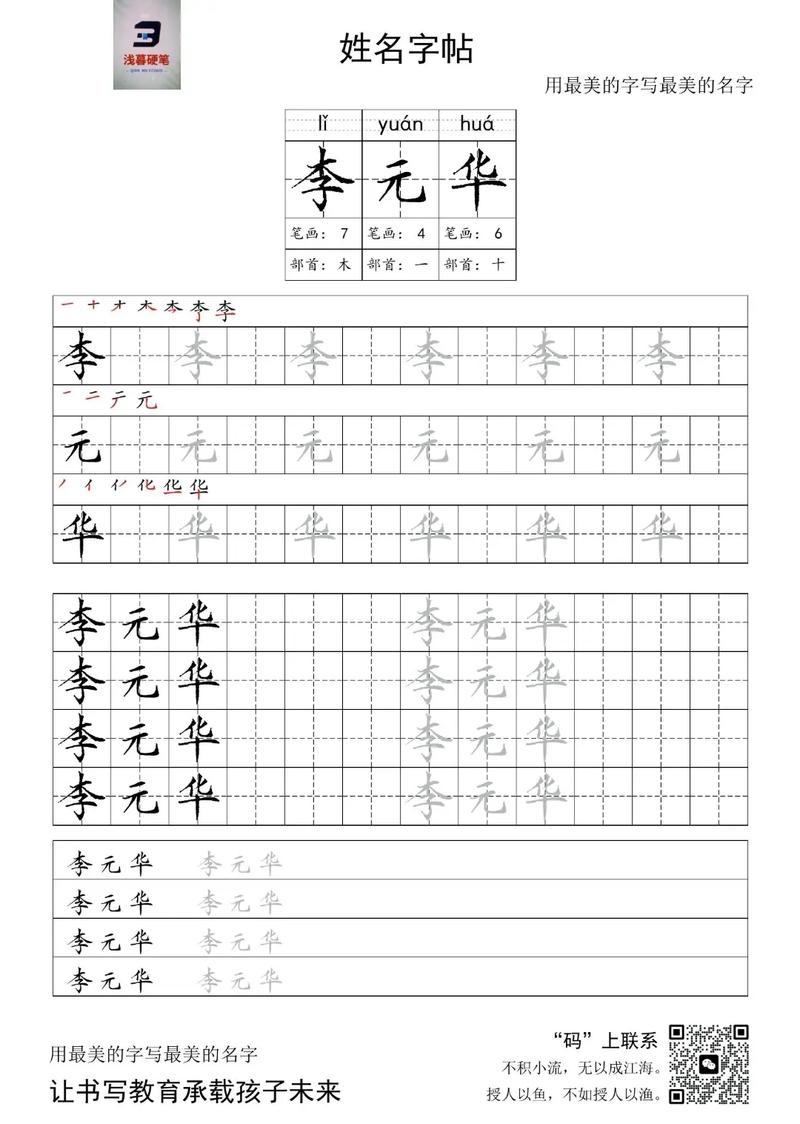 浅暮硬笔
姓名字帖
用最美的字写最美的名字
lǐ yuán huá
李 元 华
笔画： 7 笔画： 4 笔画： 6
部首： 木 部首： 一 部首： 十
李 李 李 李 李 李
元 元 元 元 元 元
华 华 华 华 华 华
李 元 华 李 元 华
李 元 华 李 元 华
李 元 华 李 元 华
李 元 华 李 元 华
李 元 华 李 元 华
李 元 华 李 元 华
李 元 华 李 元 华
李 元 华 李 元 华
“码”上联系
用最美的字写最美的名字
不积小流，无以成江海。
让书写教育承载孩子未来
授人以鱼，不如授人以渔。